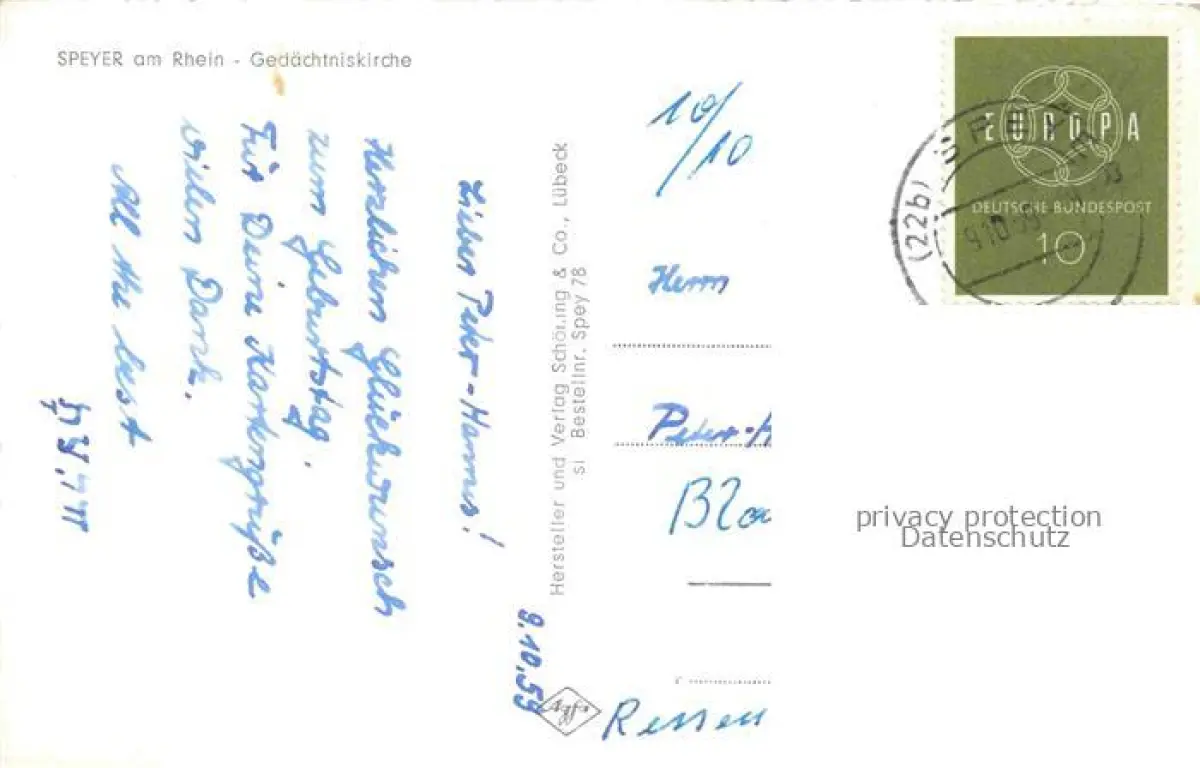 SPEYER am Rhein - Gedächtniskirche
9.10.59
Lieber Peter-Hannes!
Herzlichen Glückwunsch
zum Geburtstag.
Für Deine Kartengrüße
vielen Dank.
All the best
Hersteller und Verlag Schöning & Co., Lübeck
SI Bestellnr. Spey 78
Agfa
10/10
Herrn
Peter-H
EUROPA
DEUTSCHE BUNDESPOST
10
(22b) SPEYER
9.10.59
privacy protection
Datenschutz